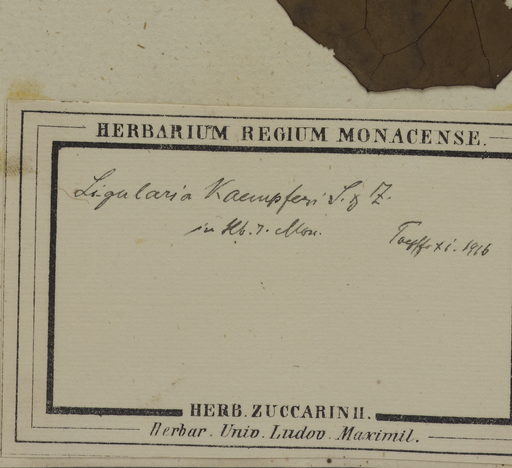 HERBARIUM REGIUM MONACENSE.
Ligularia Kaempferi S. & Z.
in Hb. r. Mon.
xi. 1916
HERB. ZUCCARINII.
Herbar. Univ. Ludov. Maximil.